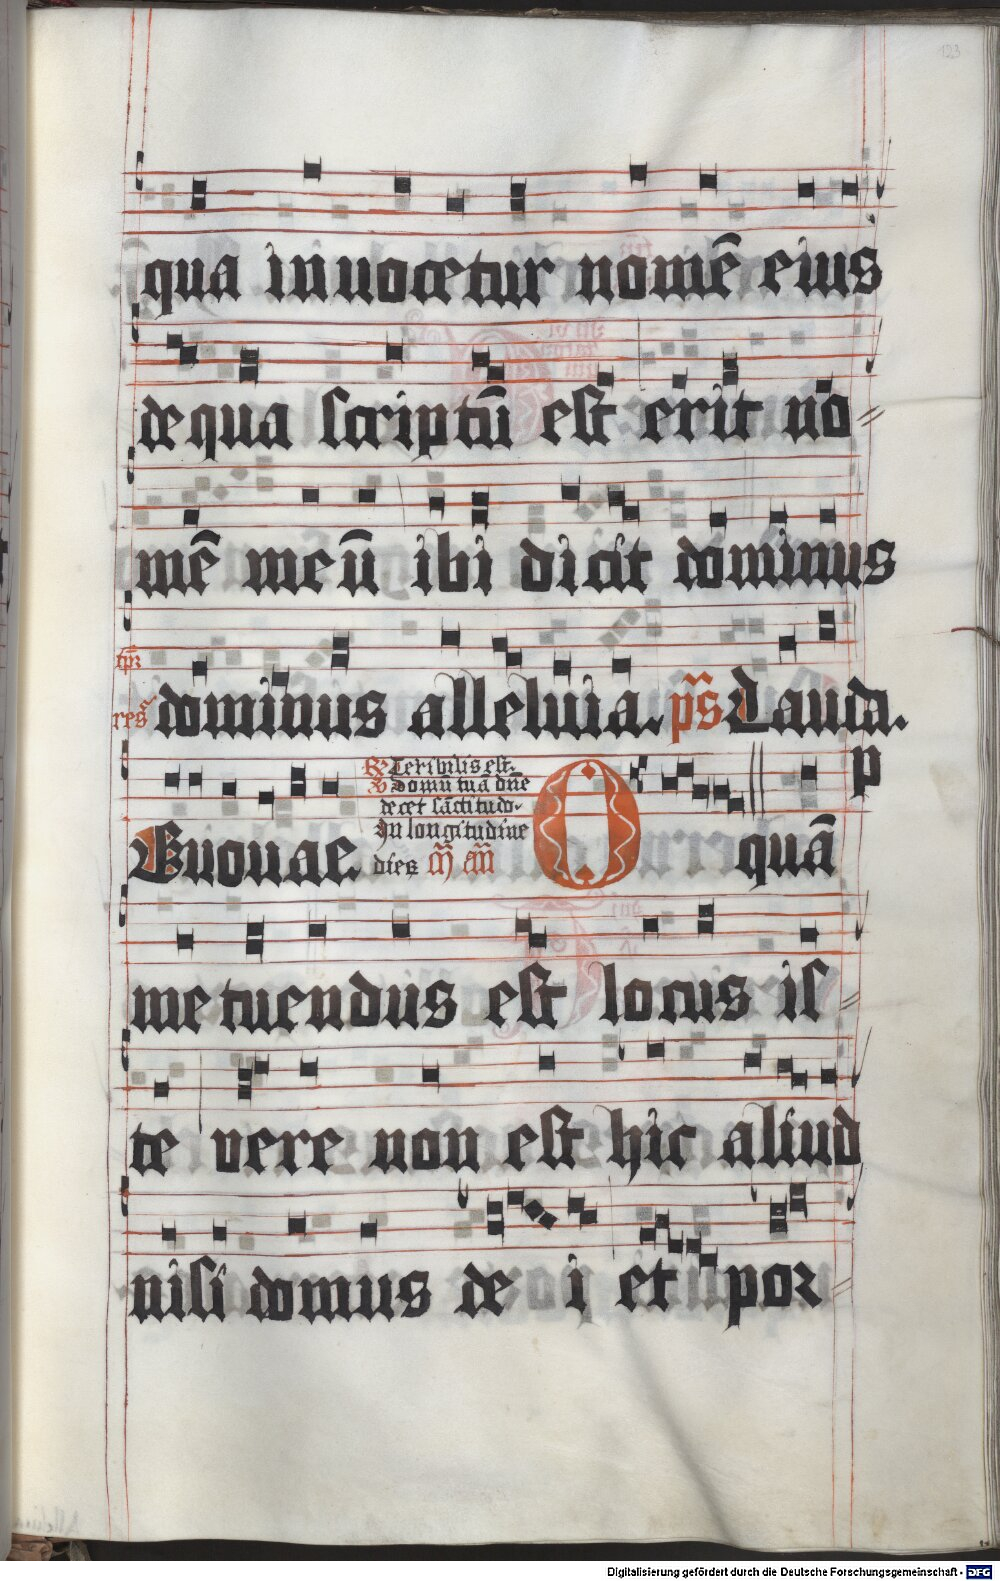 123
qua inuocetur nomē eius
de qua scriptū est erit no
mē meū ibi dicit dominus
dominus alleluia. ps Lauda.
p
Euouae.
R Teribilis est.
V Domū tuā dne
decet sāctitudo.
In longitudine
dies
O quā
metuendus est locus is
te vere non est hic aliud
nisi domus de i et por
Digitalisierung gefördert durch die Deutsche Forschungsgemeinschaft - DFG